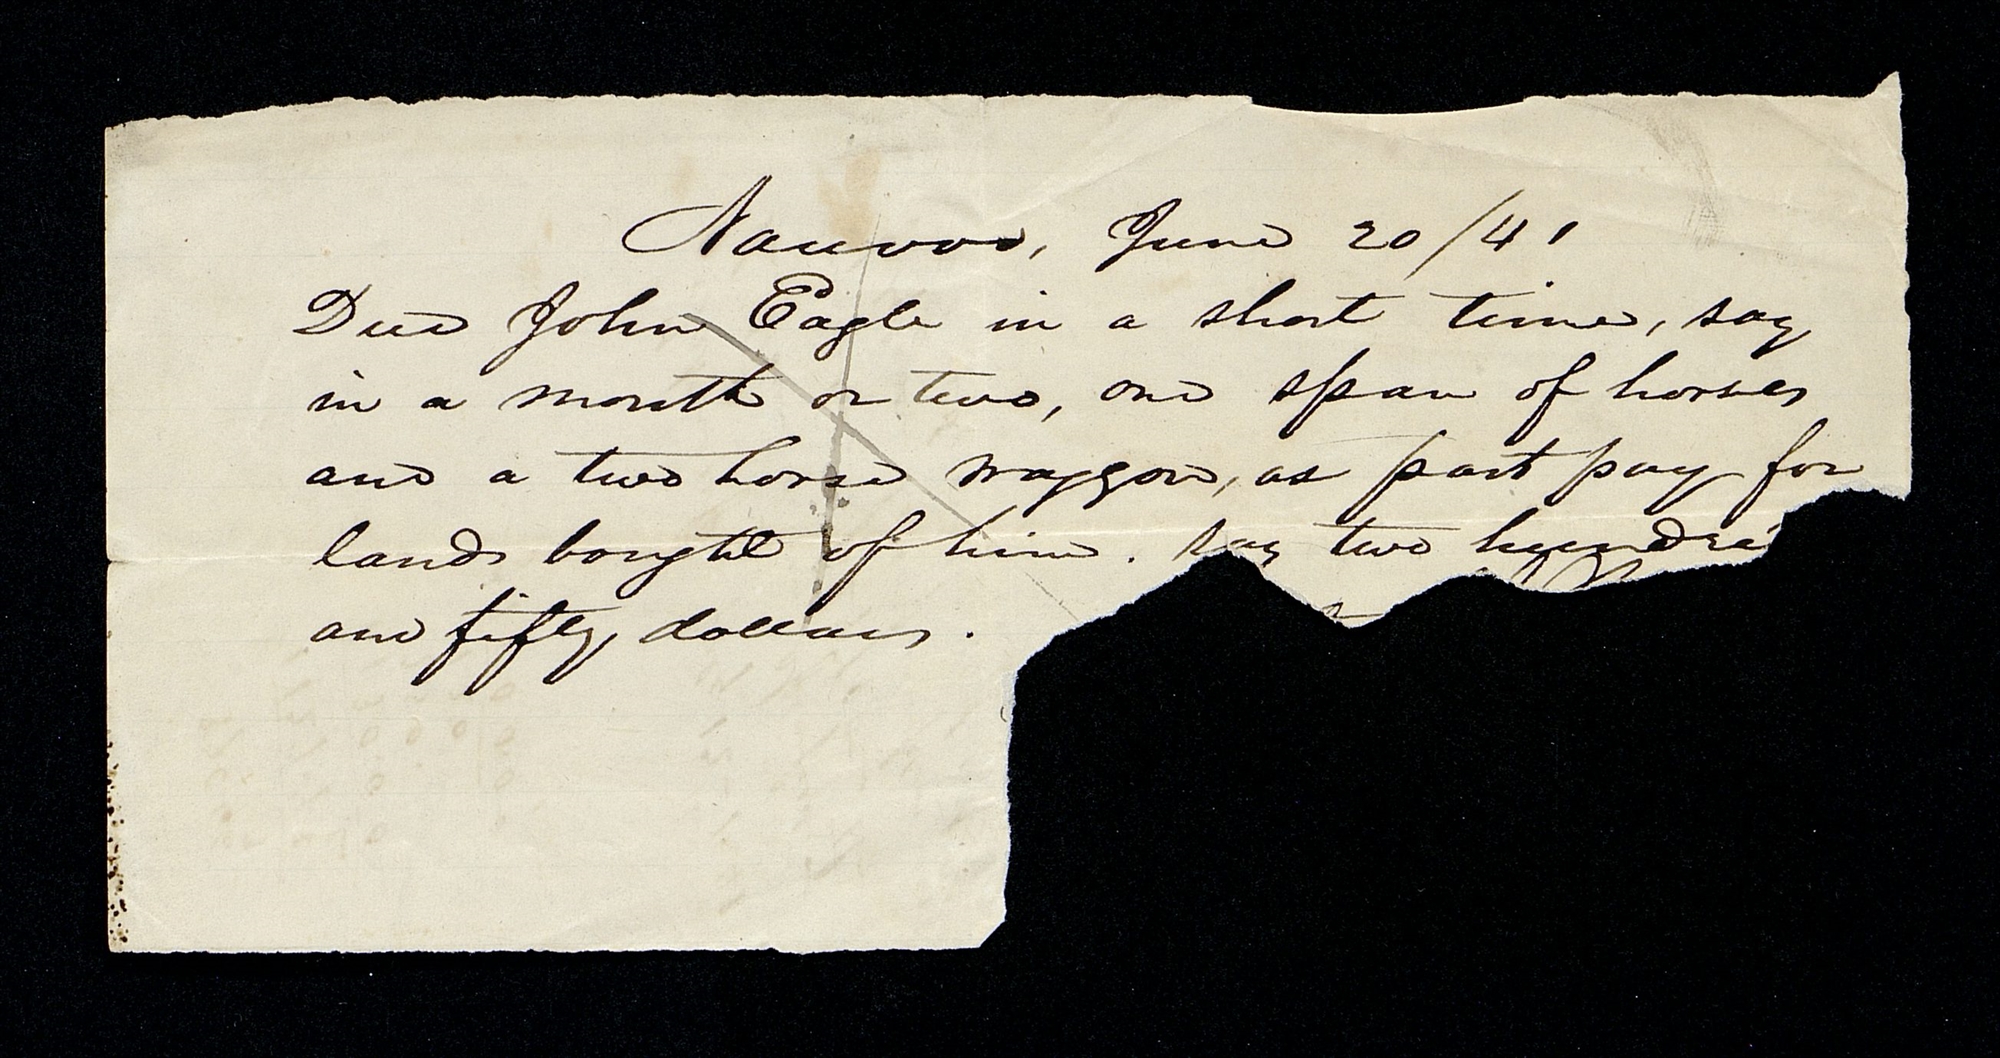 Nauvoo, June 20/41
Due John Eagle in a short time, say
in a month or two, one span of horses
and a two horse waggon, as part pay for
lands bought of him. Say two hundre
and fifty dollars.